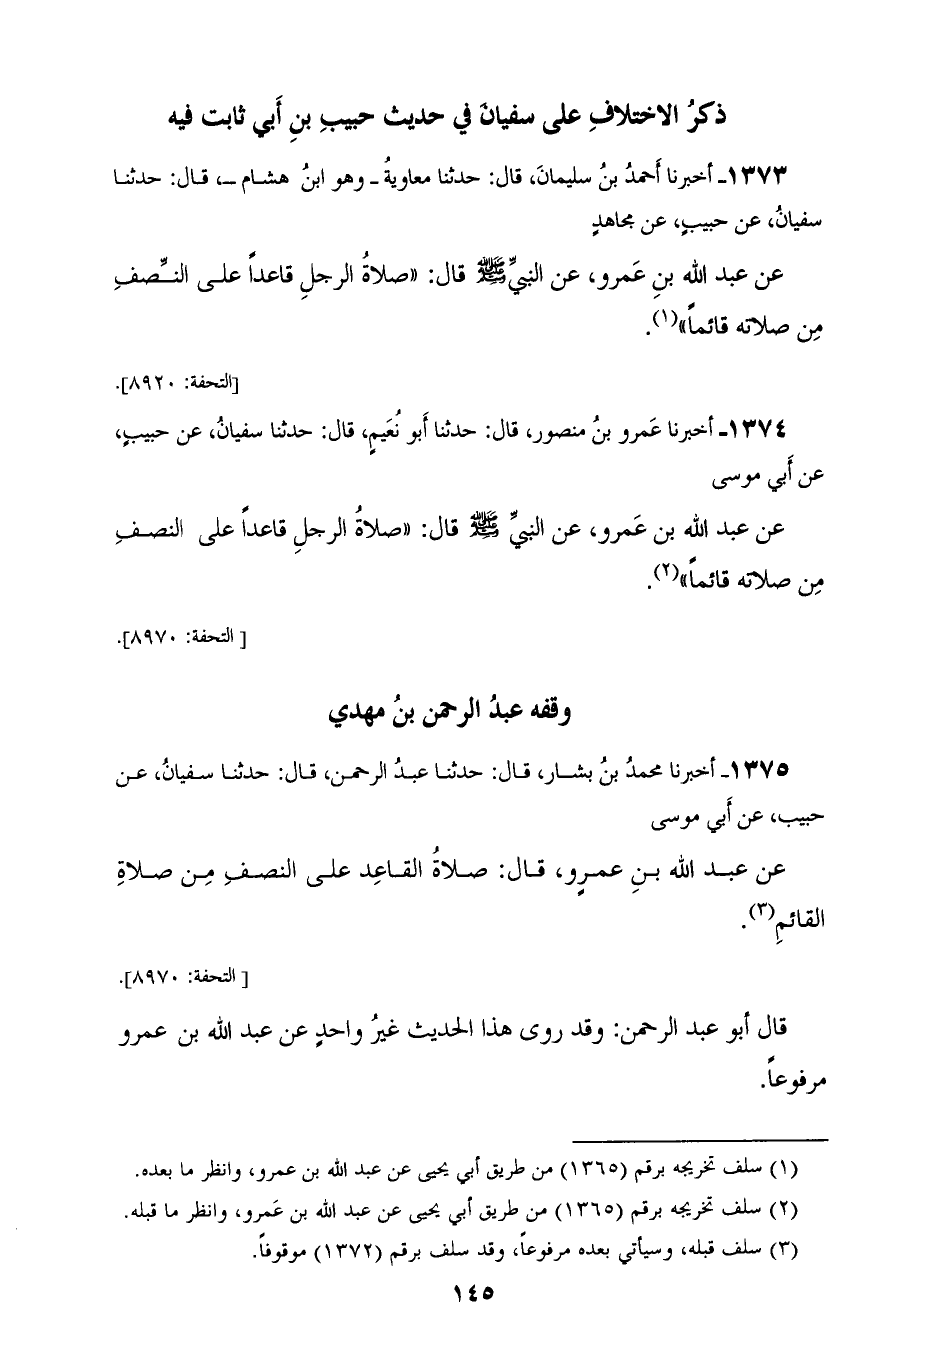 ذكرُ الاختلافِ على سفيانَ في حديث حبيبِ بنِ أَبي ثابت فيه
١٣٧٣ـ أخبرنا أَحمدُ بنُ سليمانَ، قال: حدثنا معاويةُ ـ وهو ابنُ هشام ـ، قال: حدثنا
سفيانُ، عن حبيبٍ، عن مجاهدٍ
عن عبد الله بنِ عَمرو، عن النبيِّ ﷺ قال: «صلاةُ الرجلِ قاعداً على النِّصفِ
مِن صلاته قائماً»(١).
[التحفة: ٨٩٢٠].
١٣٧٤ـ أخبرنا عَمرو بنُ منصور، قال: حدثنا أَبو نُعَيمٍ، قال: حدثنا سفيانُ، عن حبيبٍ،
عن أَبي موسى
عن عبد الله بن عَمرو، عن النبيِّ ﷺ قال: «صلاةُ الرجلِ قاعداً على النصفِ
مِن صلاته قائماً»(٢).
[ التحفة: ٨٩٧٠].
وقفه عبدُ الرحمن بنُ مهدي
١٣٧٥ـ أخبرنا محمدُ بنُ بشار، قال: حدثنا عبدُ الرحمن، قال: حدثنا سفيانُ، عن
حبيب، عن أَبي موسى
عن عبد الله بنِ عمرٍو، قال: صلاةُ القاعِد على النصفِ مِن صلاةِ
القائمِ(٣).
[ التحفة: ٨٩٧٠].
قال أبو عبد الرحمن: وقد روى هذا الحديث غيرُ واحدٍ عن عبد الله بن عمرو
مرفوعاً.
(١) سلف تخريجه برقم (١٣٦٥) من طريق أبي يحيى عن عبد الله بن عمرو، وانظر ما بعده.
(٢) سلف تخريجه برقم (١٣٦٥) من طريق أبي يحيى عن عبد الله بن عَمرو، وانظر ما قبله.
(٣) سلف قبله، وسيأتي بعده مرفوعاً، وقد سلف برقم (١٣٧٢) موقوفاً.
١٤٥